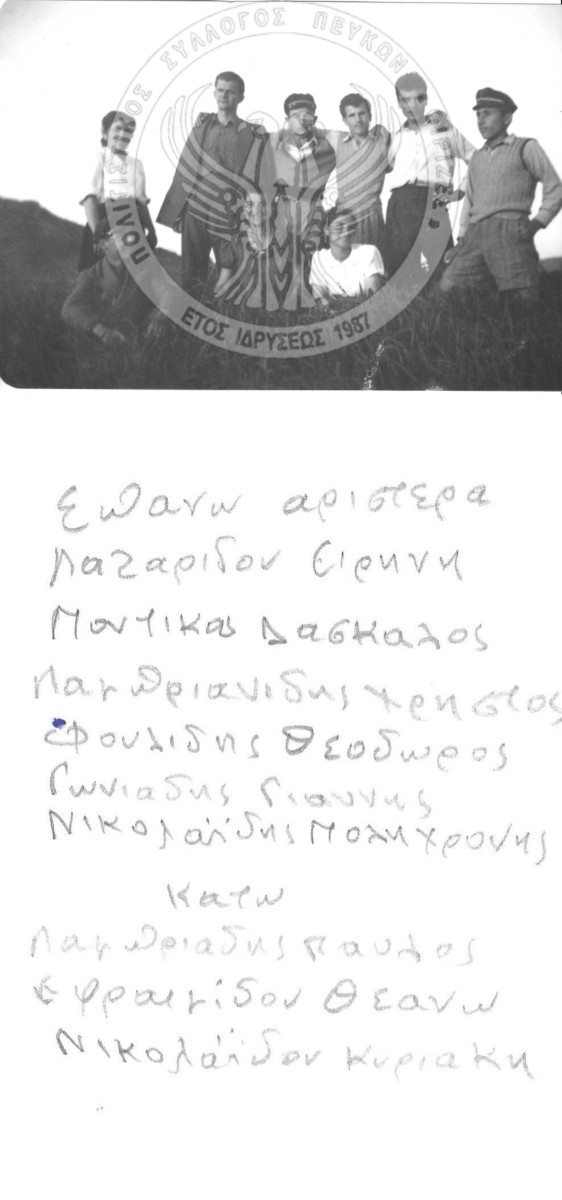 ΠΟΛΙΤΙΣΤΙΚΟΣ ΣΥΛΛΟΓΟΣ ΠΕΥΚΩΝ
ΕΤΟΣ ΙΔΡΥΣΕΩΣ 1987
Επανω αριστερα
Λαζαριδου Ειρηνη
Ποντικας Δασκαλος
Λαμπριανιδης Χρηστος
Φουλιδης Θεοδωρος
Γωνιαδης Γιαννης
Νικολαϊδης Πολυχρονης
κατω
Λαμπριαδης Παυλος
Εφραιμίδου Θεανω
Νικολαϊδου Κυριακη